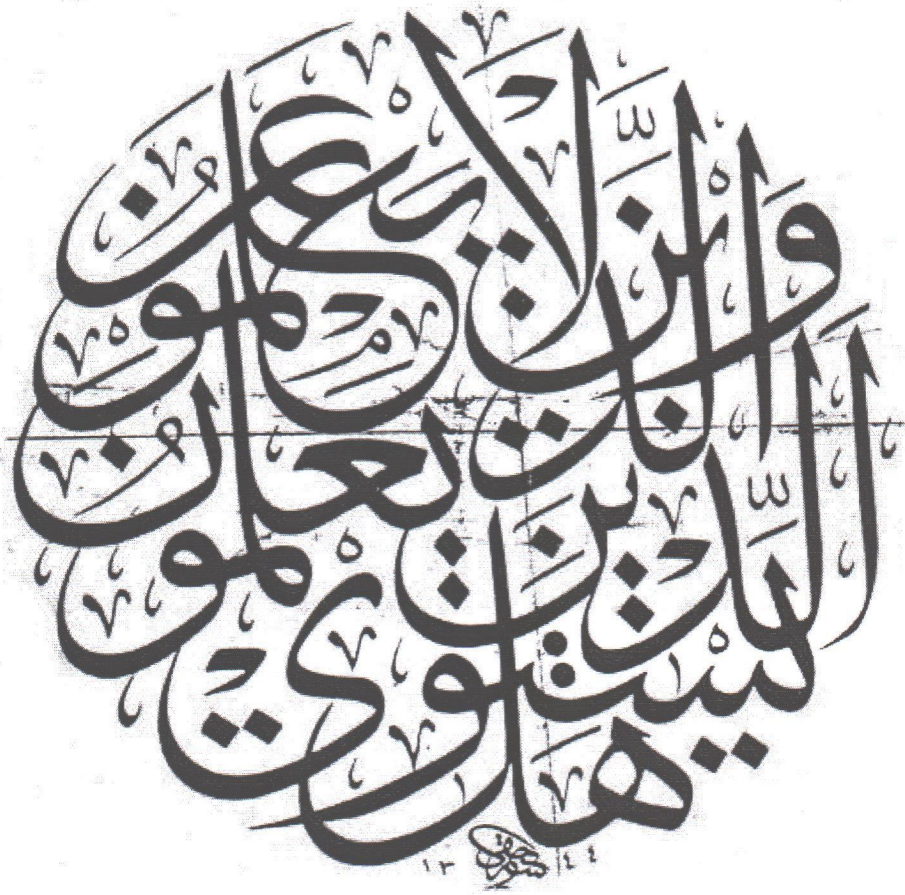 هَلْ يَسْتَوِي الَّذِينَ يَعْلَمُونَ وَالَّذِينَ لَا يَعْلَمُونَ
١٣٤٤